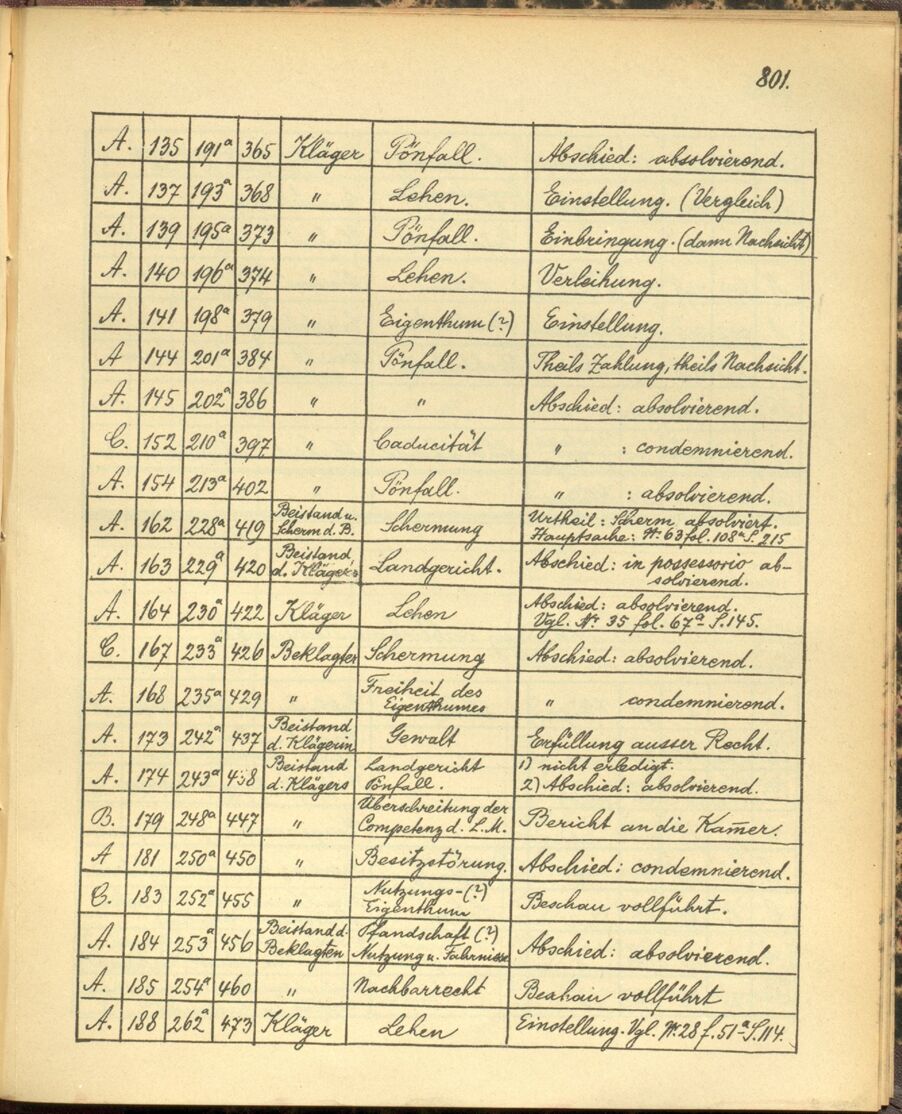 801.
A. 135 191a 365 Kläger Pönfall. Abschied: absolvierend.
A. 137 193a 368 " Lehen. Einstellung. (Vergleich)
A. 139 195a 373 " Pönfall. Einbringung. (dann Nachsicht)
A. 140 196a 374 " Lehen. Verleihung.
A. 141 198a 379 " Eigenthum (?) Einstellung.
A 144 201a 384 " Pönfall. Theils Zahlung, theils Nachsicht.
A. 145 202a 386 " " Abschied: absolvierend.
C. 152 210a 397 " Caducität " : condemnierend.
A. 154 213a 402 " Pönfall. " : absolvierend.
A. 162 228a 419 Beistand u. Scherm d. B. Schermung Urtheil: Scherm absolviert.
Hauptsache: N. 63 fol. 108a S. 215
A. 163 229a 420 Beistand d. Klägers Landgericht. Abschied: in possessorio ab-
solvierend.
A. 164 230a 422 Kläger Lehen Abschied: absolvierend.
Vgl. Nr. 35 fol. 67a S. 145.
C. 167 233a 426 Beklagter Schermung Abschied: absolvierend.
A. 168 235a 429 " Freiheit des Eigenthumes " condemnierend.
A. 173 242a 437 Beistand d. Klägerin Gewalt Erfüllung ausser Recht.
A. 174 243a 438 Beistand d. Klägers Landgericht 1) nicht erledigt.
Pönfall. 2) Abschied: absolvierend.
B. 179 248a 447 " Überschreitung der Competenz d. L. M. Bericht an die Kam̅er.
A 181 250a 450 " Besitzstörung. Abschied: condemnierend.
C. 183 252a 455 " Nutzungs-(?) Eigenthum Beschau vollführt.
A. 184 253a 456 Beistand d. Beklagten Pfandschaft (?) Nutzung u. Fahrnisse Abschied: absolvierend.
A. 185 254a 460 " Nachbarrecht Beahau vollführt
A. 188 262a 473 Kläger Lehen Einstellung. Vgl. N. 28 f. 51a S. 114.